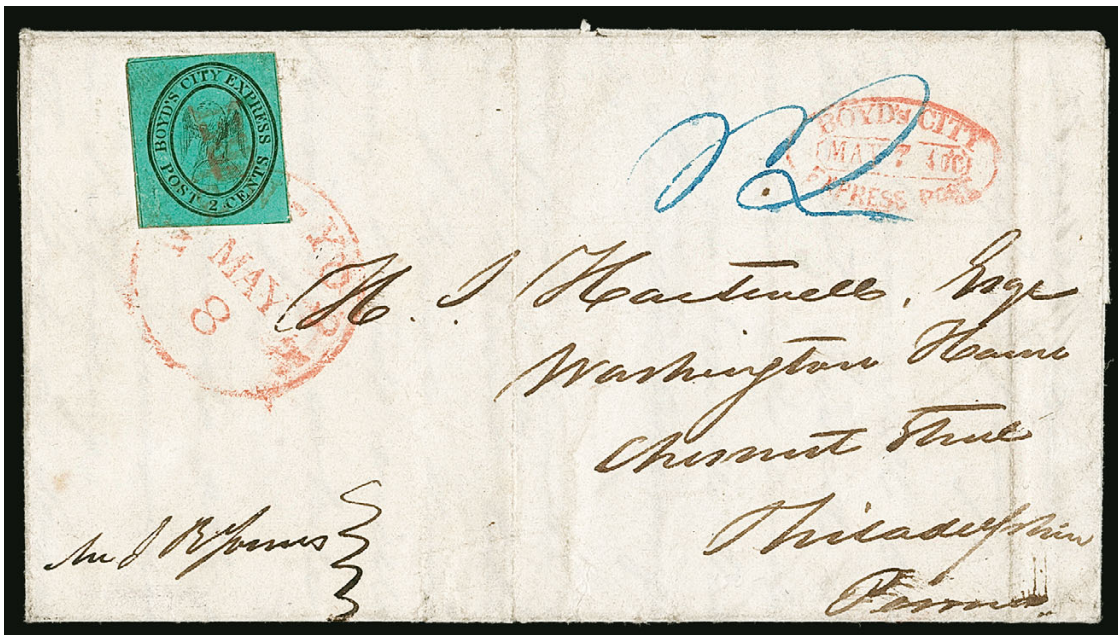 BOYD'S CITY EXPRESS
POST 2 CENTS
BOYD'S CITY
MAY 7
EXPRESS POST
YORK
MAY
8
H. J. Hartwell, Esqr
Washington House
Chesnut Street
Philadelphia
Penna